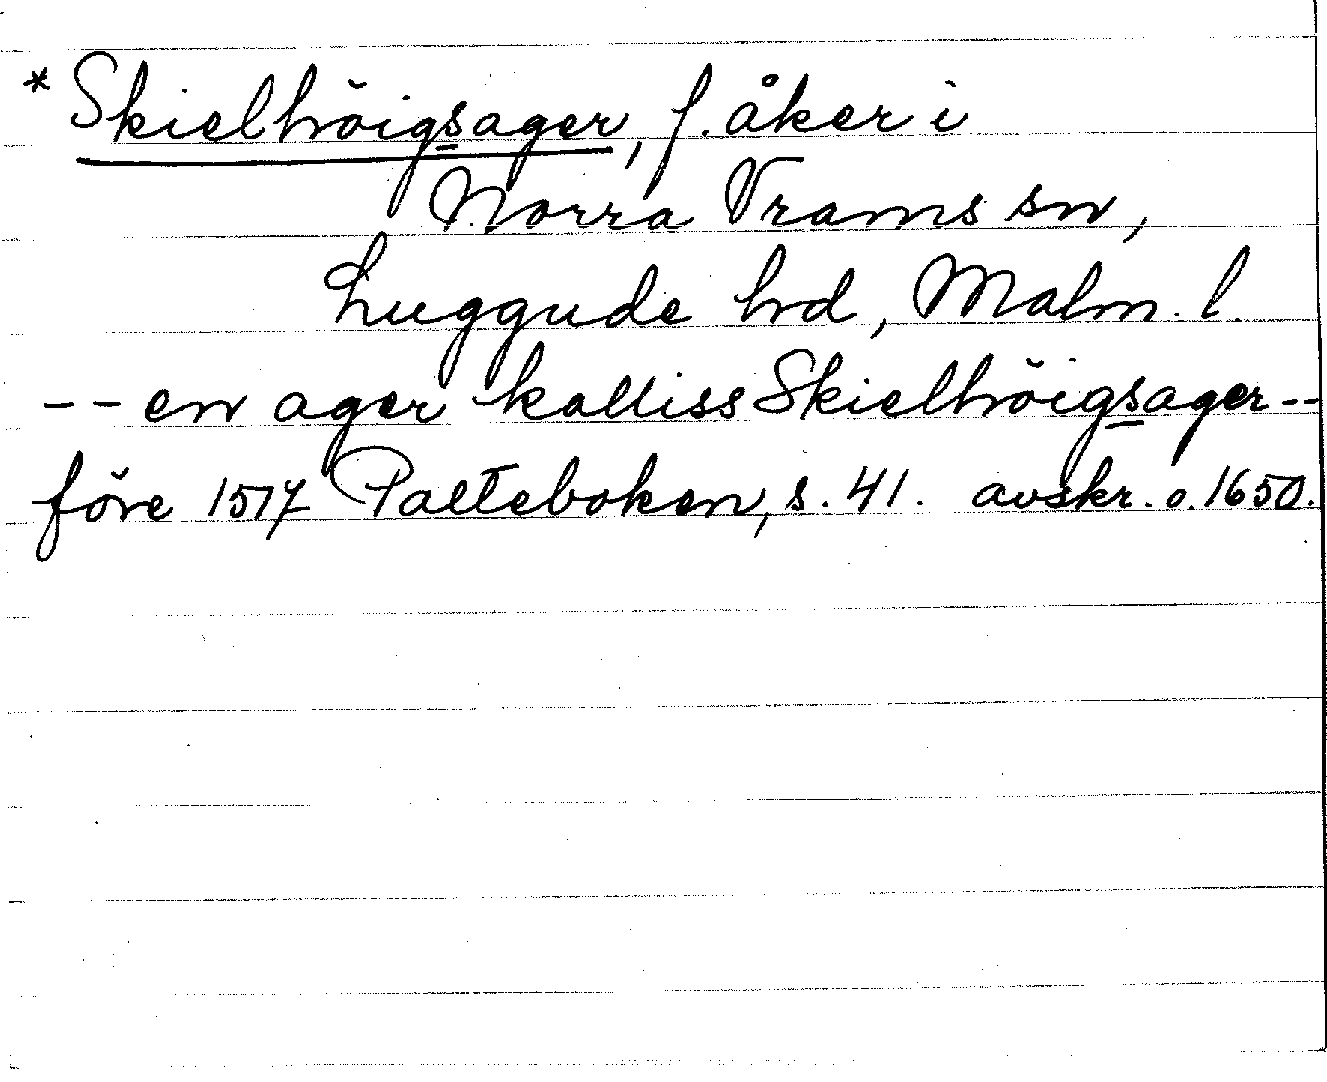 *Skielhöigsager, f. åker i
Norra Vrams sn,
Luggude hd, Malm. l.
-- en ager kalliss Skielhöigsager --
före 1517 Palteboken, s. 41. avskr. o. 1650.